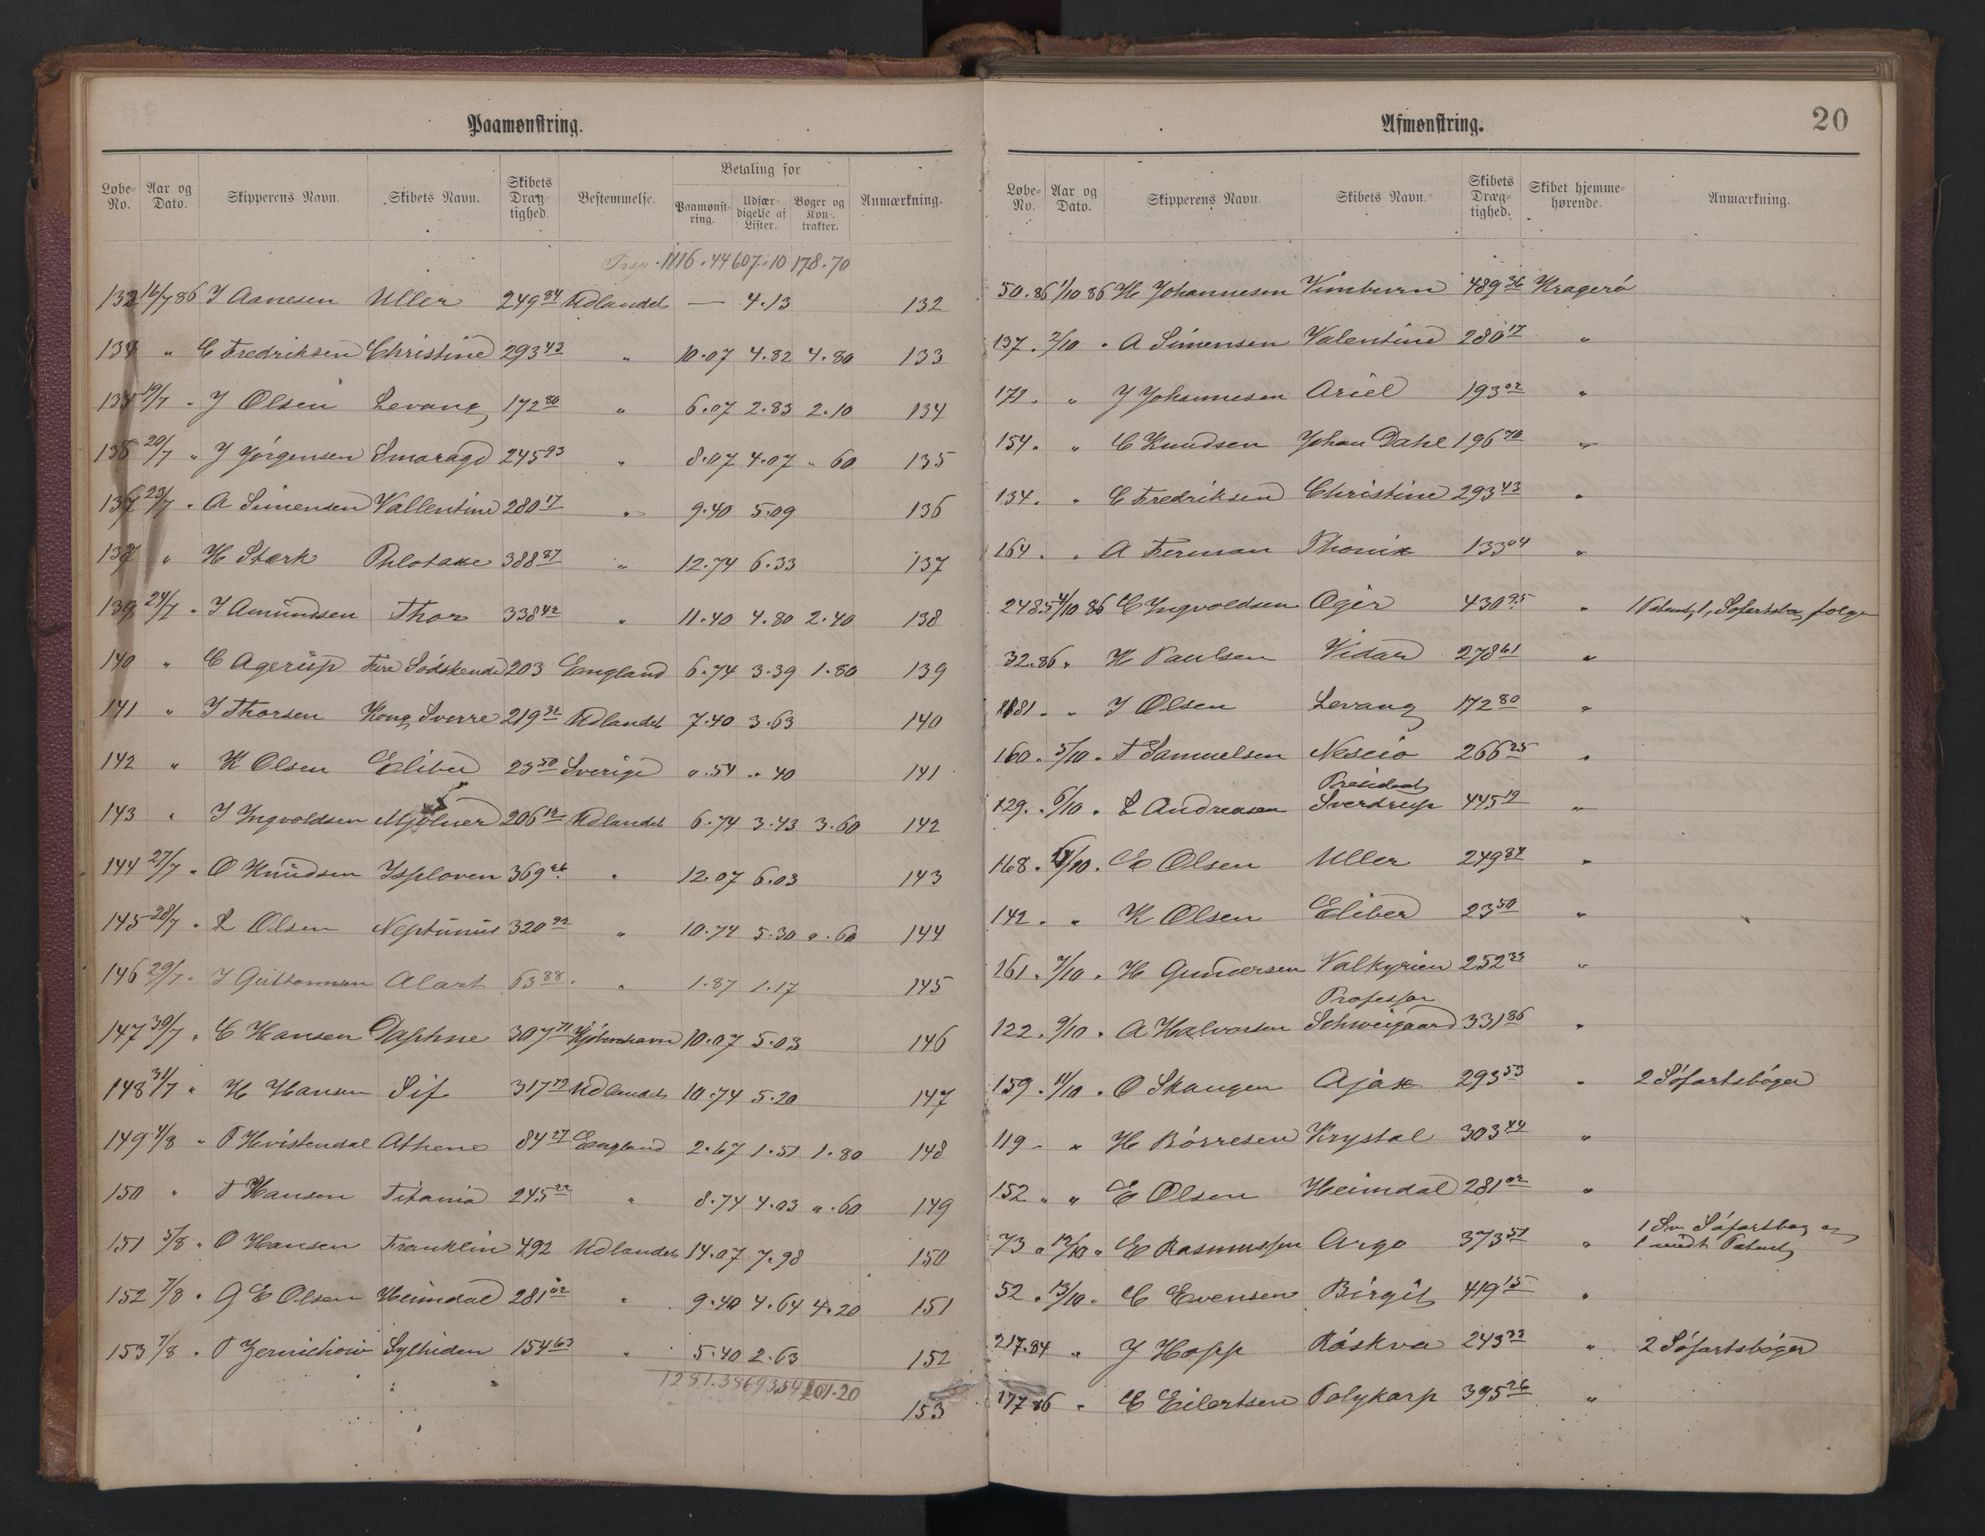 Paamønstring.
Løbe-No. Aar og Dato. Skipperens Navn. Skibets Navn. Skibets Dræg-tighed. Bestemmelse. Betaling for Paamønst-ring. Udfær-digelse af Lister. Bøger og Kon-trakter. Anmærkning.
Trsp. 1116.44 607.10 178.70
132 16/7 86 J Aanesen Uller 249 84 Udlandet — 4.13 132
134 " C Fredriksen Christine 293 43 " 10.07 4.82 4.80 133
135 19/7 " J Olsen Levang 172 80 " 6.07 2.83 2.10 134
136 20/7 " J Jørgensen Smaragd 245 93 " 8.07 4.07 " 60 135
137 23/7 " A Simensen Vallentine 280 17 " 9.40 5.09 136
138 " H Stærk Philotaxe 388 87 " 12.74 6.33 137
139 24/7 " J Amundsen Thor 338 42 " 11.40 4.80 2.40 138
140 " C Agerup Fire Södskende 203 England 6.74 3.39 1.80 139
141 " J Thorsen Kong Sverre 219 32 Udlandet 7.40 3.63 140
142 " K Olsen Eliber 23 50 Sverige " .54 " 40 141
143 " J Ingvoldsen Mjölner 206 12 Udlandet 6.74 3.43 3.60 142
144 27/7 " O Knudsen Isploven 369 26 " 12.07 6.03 143
145 28/7 " L Olsen Neptunus 320 92 " 10.74 5.30 " .60 144
146 29/7 " J Guttormsen Alart 63 88 " 1.87 1.17 145
147 30/7 " C Hansen Daphne 307 71 Kjøbenhavn 10.07 5.03 146
148 31/7 " H Hansen Sif 317 72 Udlandet 10.74 5.20 147
149 4/8 " P Hvistendal Athene 84 27 England 2.67 1.51 1.80 148
150 " T Hansen Titania 245 22 " 8.74 4.03 " .60 149
151 5/8 " O Hansen Franklin 492 Udlandet 14.07 7.98 150
152 7/8 " G E Olsen Heimdal 281 02 " 9.40 4.64 4.20 151
153 7/8 " P Jernichow Sylhiden 154 63 " 5.40 2.63 152
1281.38 693.54 201.20
153
Afmønstring.
20
Løbe-No. Aar og Dato. Skipperens Navn Skibets Navn Skibets Dræg-tighed. Skibet hjemme-hørende. Anmærkning.
50.86 1/10 86 H Johannesen Vimburn 489 36 Kragerö
137 . 2/10 " A Simensen Valentine 280 17 "
171 . " J Johannesen Ariel 193 02 "
154 . " C Knudsen Johan Dahl 196 70 "
134 . " C Fredriksen Christine 293 43 "
164 . " A Ferman Phonix 133 04 "
248.85 4/10 86 C Ingvoldsen Ægir 430 95 " 1 Patent, 1 Søfartsbog følge
32.86 " H Paulsen Vidar 278 61 "
181 . " J Olsen Levang 172 80 "
160 . 5/10 " T Samuelsen Nescio 266 25 "
129 . 6/10 " L Andreasen President Sverdrup 445 12 "
168 . /10 . E Olsen Uller 249 84 "
142 . " K Olsen Eliber 23 50 "
161 . 7/10 . H Gundersen Valkyrien 252 33 "
122 . 9/10 . A Halvorsen Professor Schweigaard 331 86 "
159 . 11/10 . O Skaugen Ajax 293 53 " 2 Söfartsböger
119 . " H Börresen Krystal 303 44 "
152 " " E Olsen Heimdal 281 02 "
73 " 12/10 " E Rasmussen Argo 373 51 " 1 Sv Söfartsbog og 1 midt. Patent
52 . 13/10 . C Evensen Birgit 419 15 "
217.84 " J Hopp Röskva 243 33 " 2 Söfartsböger
177.86 " E Eilertsen Polykarp 395 26 "